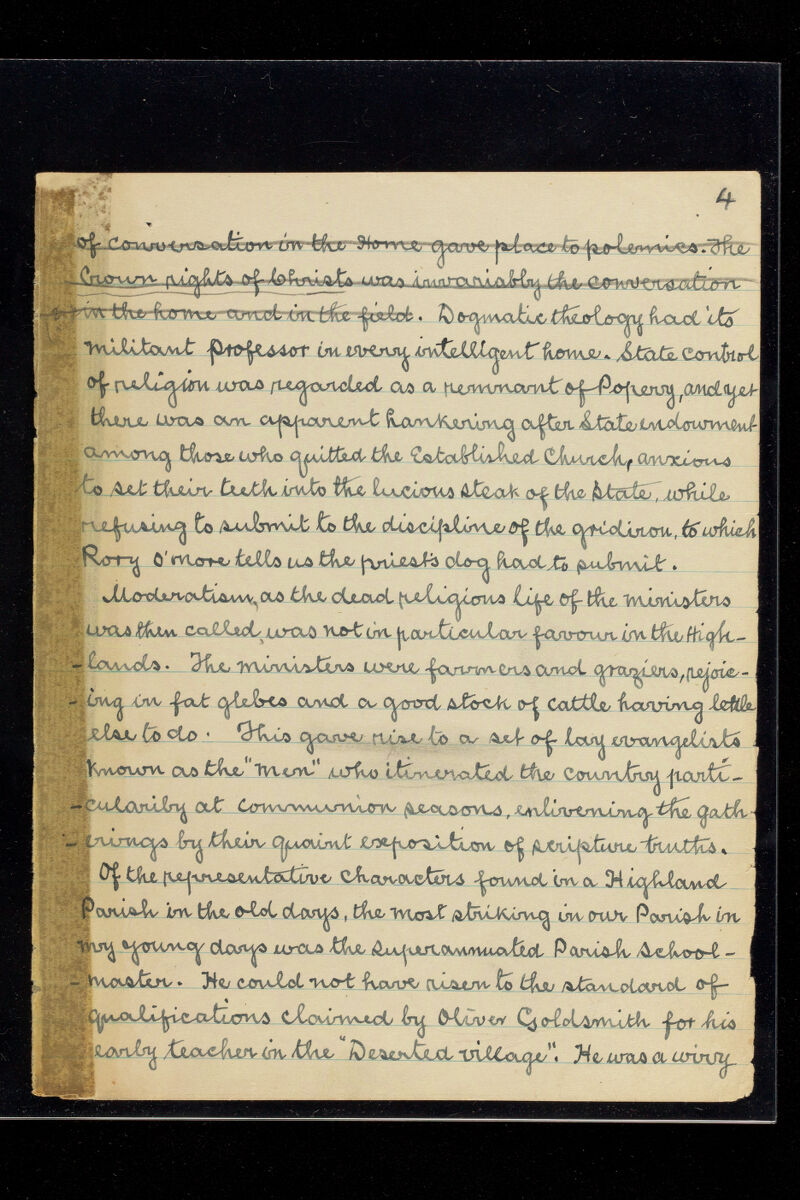 4
of conversation in the Home gave place to polemics. The
Crown rights of Christs was invariabby the conversation
in the home and in the field. Dogmatic theology had its
militant professor in every intelligent home. State control
of religion was regarded as a remnant of Popery, and yet
there was an apparent hankering after State endowment
among those who quitted the Established Church, anxious
to set their teeth into the lucious steak of the State, while
refusing to submit to the discipline of the gridiron, to which
Rory O'more tells us the priest's dog had to submit.
Moderatism, as the dead religious life of the ministers
was then called, was not in particular favour in the High-
-lands. The ministers were farmers and graziers, rejoic-
-ing in fat glebes and a good stock of cattle having little
else to do. This gave rise to a set of lay evangelists
known as the "men" who itinerated the country parti-
-culariby at communion seasons, enlivening the gath-
-erings by their quaint exposition of scripture truths.
Of the representative characters found in a Highland
Parish in the old days, the most striking in our Parish in
my young days was the superannuated Parish School-
-master. He could not have risen to the standard of
qualifications claimed by Oliver Goldsmith for his
earby teacher in the "Deserted village". He was a wirry